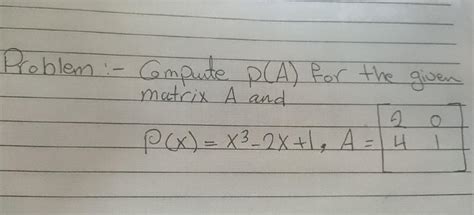 Problem :- Compute p(A) for the given
matrix A and
P(x) = x³-2x+1, A = [2 0
4 1]